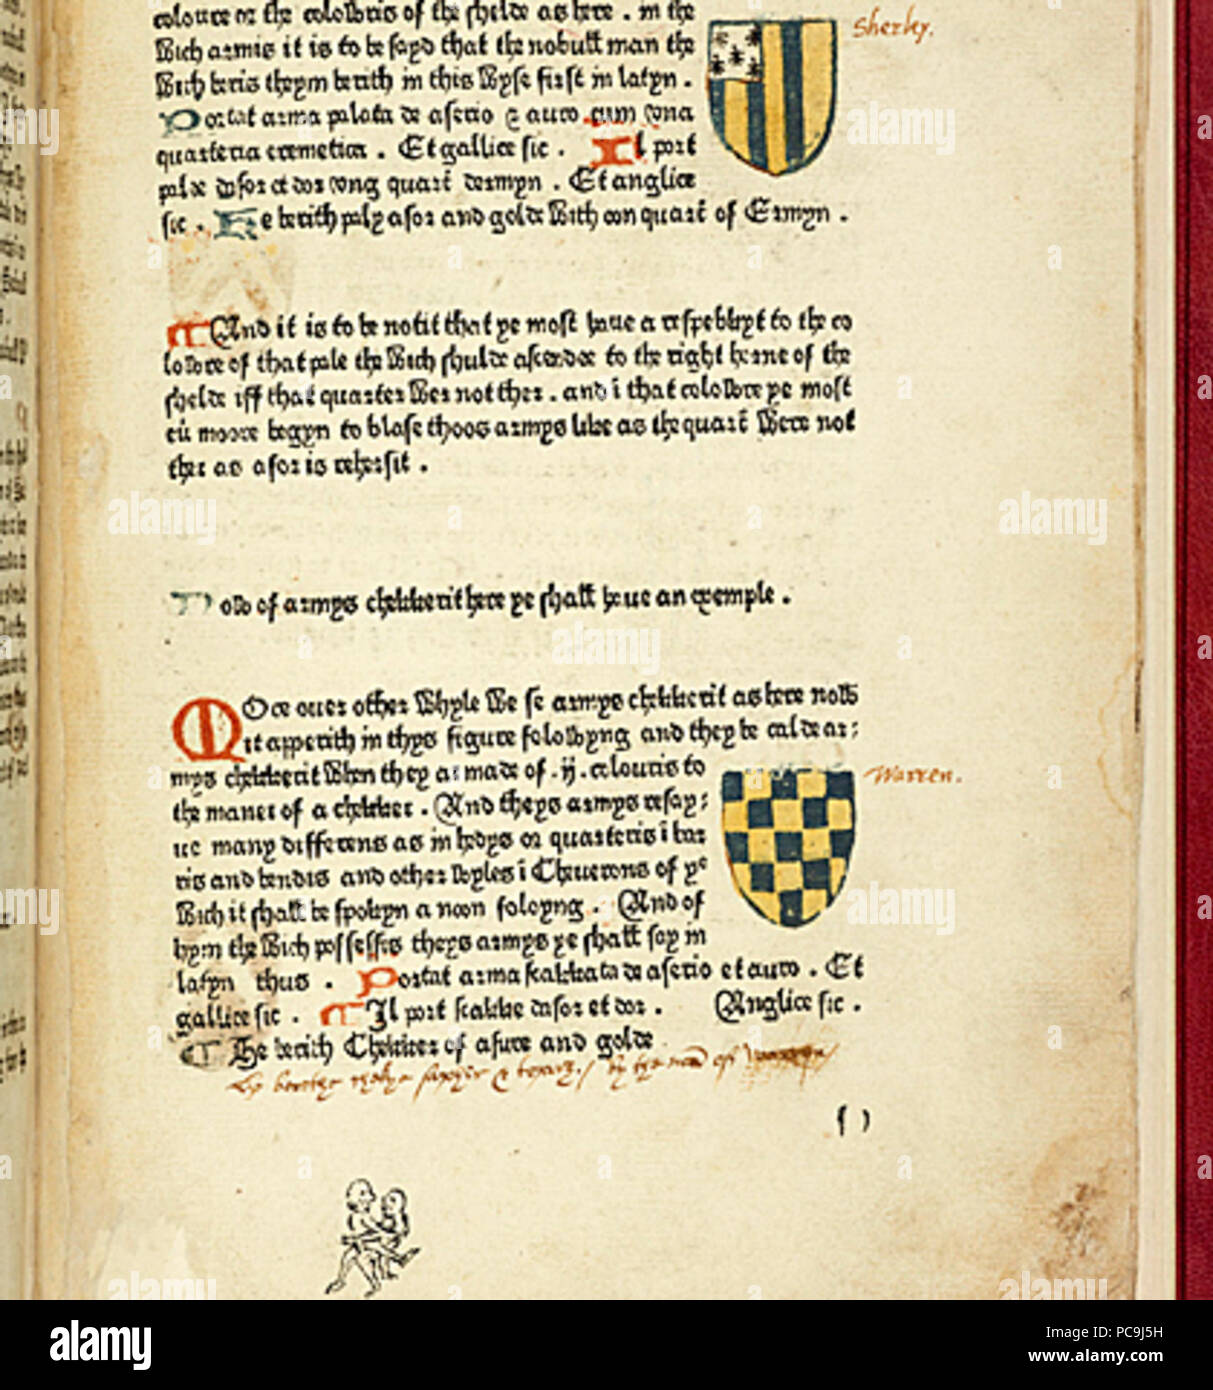 coloure or the colowris of the shelde as here . in the
Wich armis it is to be sayd that the nobull man the
Wich beris theym berith in this Wyse first in latyn .
Portat arma palata de aserio & auro cum vna
quarteria eremetica . Et gallice sic . Il port
pale dasor et dor vng quart dermyn . Et anglice
sic . He berith paly asor and golde With oon quart of Ermyn .
Sherley.
¶ And it is to be notit that ye most haue a respeckyt to the co
lowre of that pale the Wich shulde ascendee to the right horne of the
shelde iff that quarter Wer not ther . and i that colowre ye most
eū moore begyn to blase thoos armys like as the quart Were not
ther as afor is rehersit .
Now of armys chekkerit here ye shall haue an exemple .
MOre ouer other Whyle We se armys chekkerit as here now
it apperith in thys figure folowyng and they be calde ar:
mys chekkerit When they ar made of . ij . colouris to
the maner of a chekker . And theys armys resay:
ue many differens as in hedys or quarteris i bar
ris and bendis and other Wyles i Cheuerons of yᵉ
Wich it shall be spokyn a noon foloyng . And of
hym the Wich possesses theys armys ye shall say in
latyn thus . Portat arma scakkata de aserio et auro . Et
gallice sic . ¶ Il port scakke dasor et dor . Anglice sic .
¶ He berith Chekker of asure and golde
Warren.
f )
alamy
PC9J5H
www.alamy.com